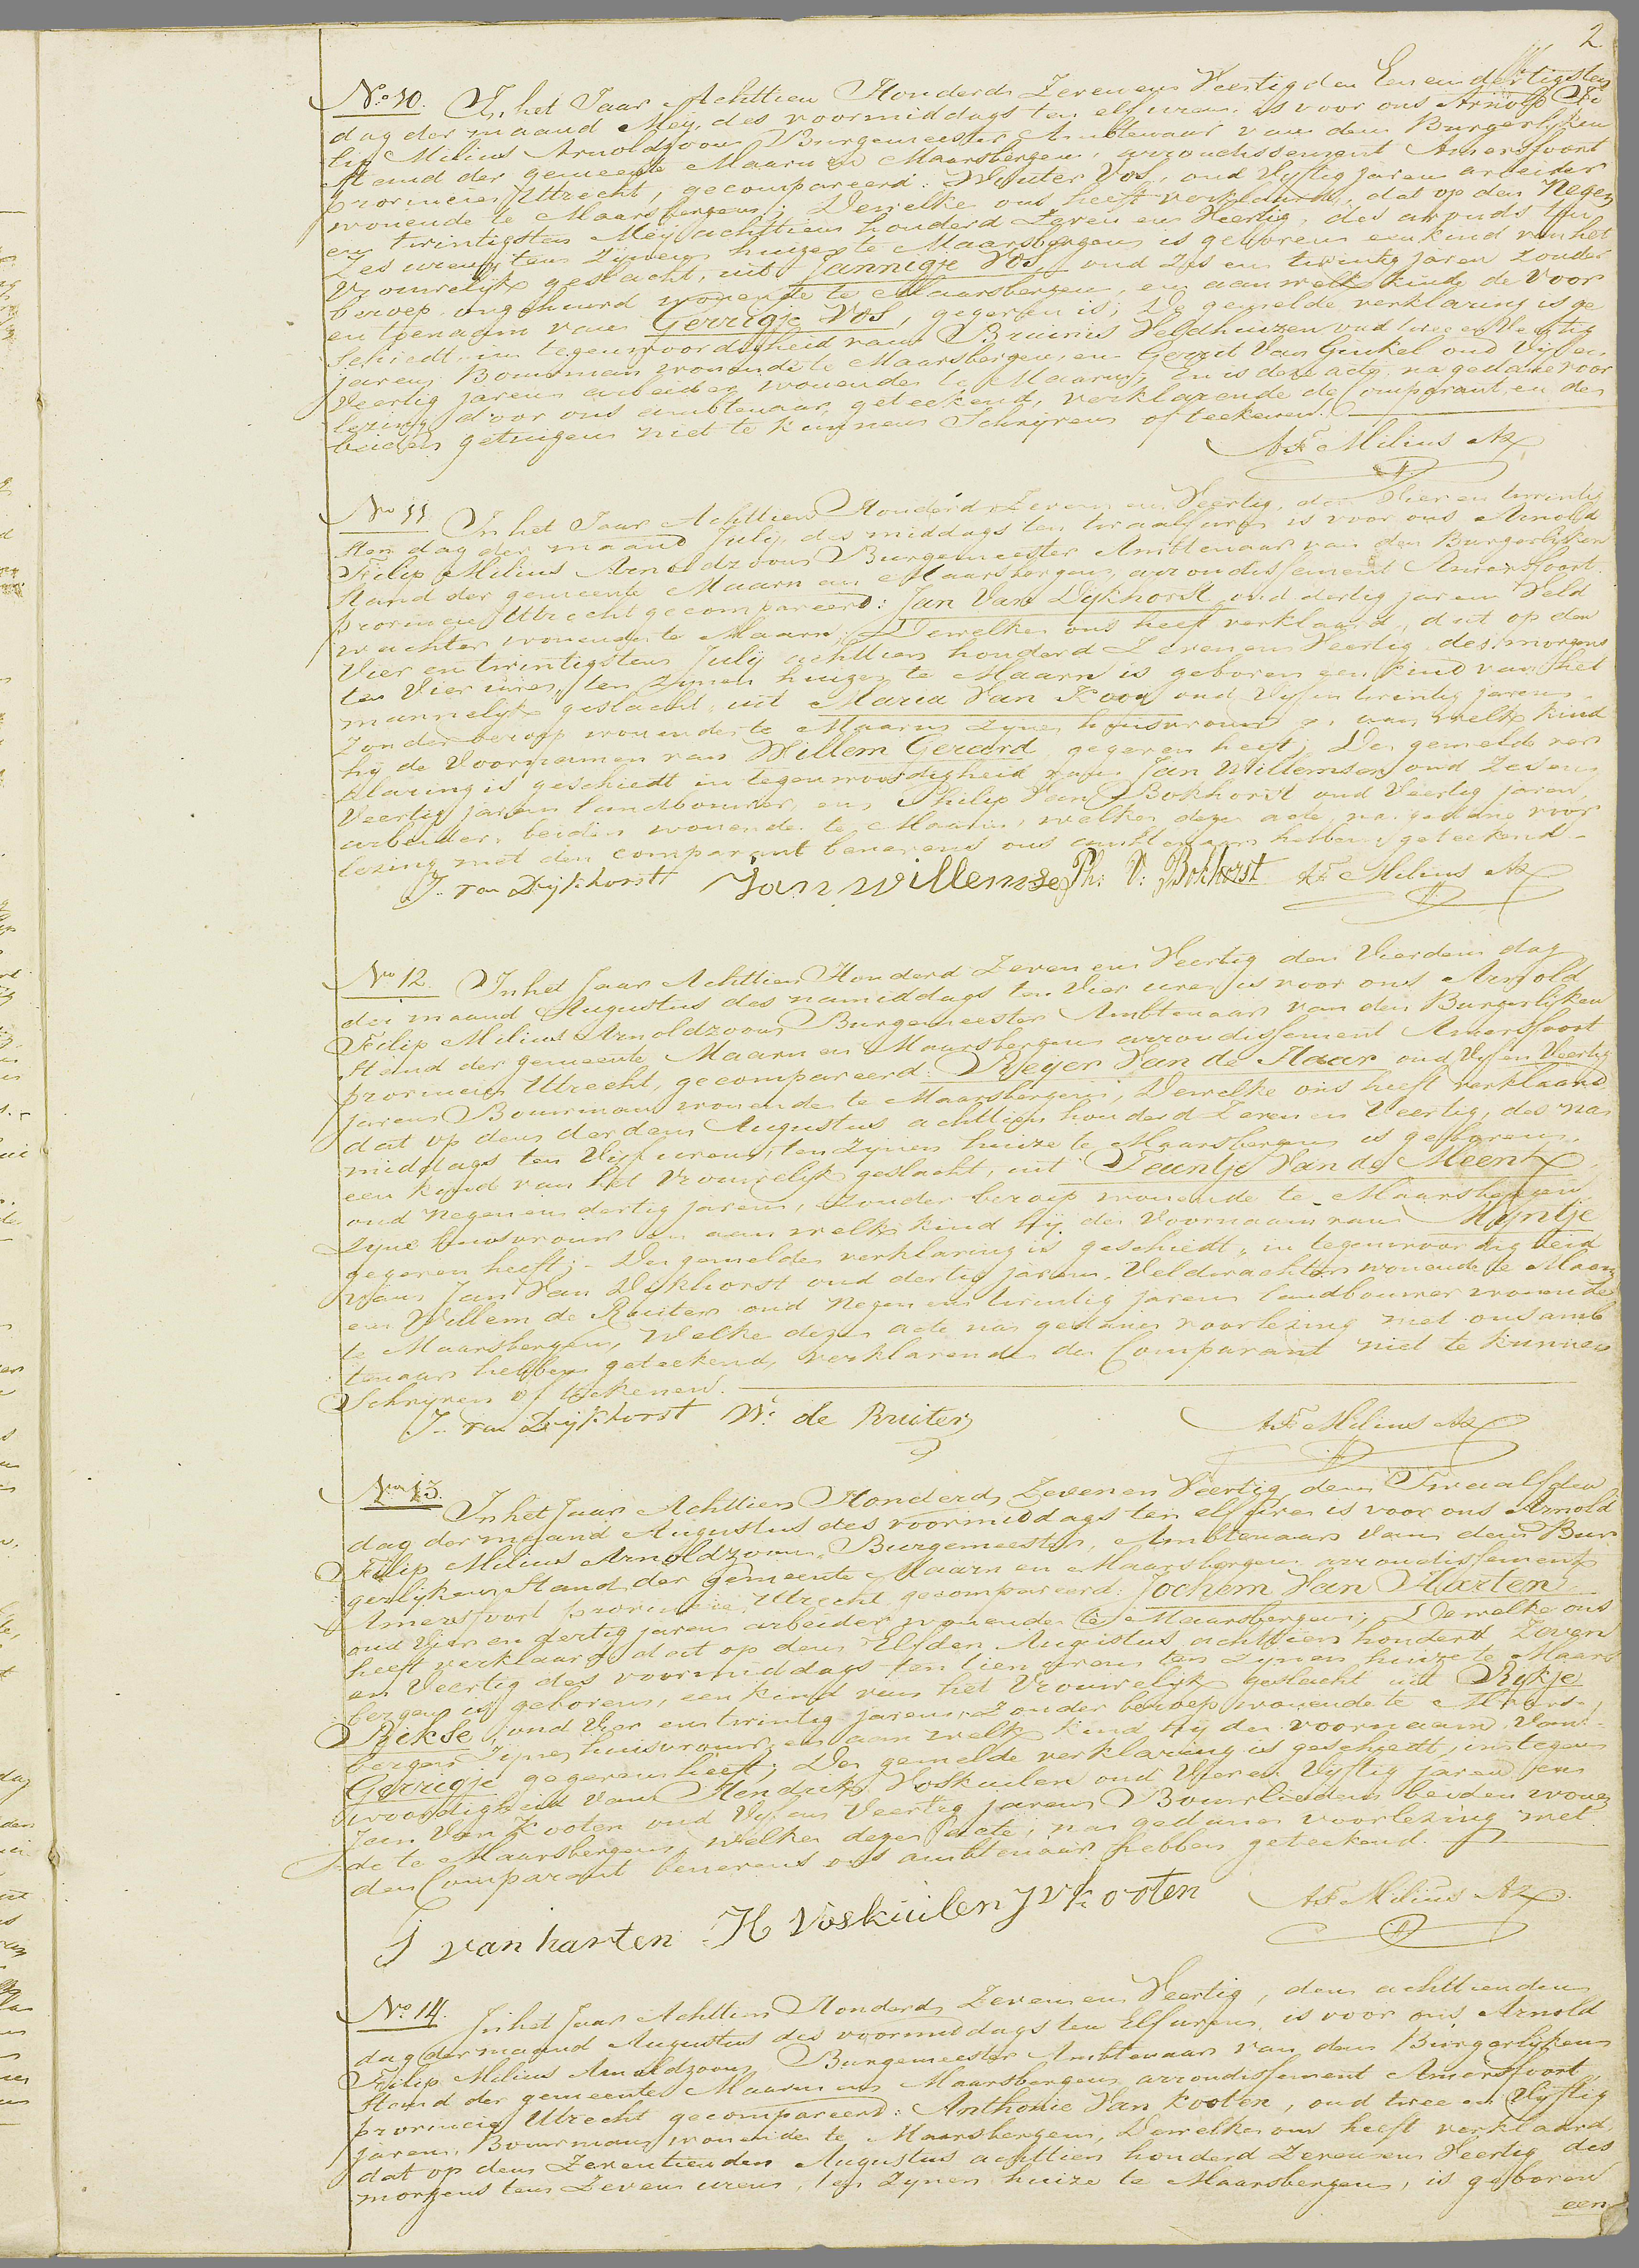 2
No. 10. In het Jaar Achttien Honderd Zeven en Veertig den Een en dertigsten
dag der maand Meij, des voormiddags ten elf uren, is voor ons Arnold Fi
lip Milius Arnoldzoon Burgemeester Ambtenaar van den Burgerlijken
Stand der gemeente Maarn en Maarsbergen, arrondissement Amersfoort
provincie Utrecht, gecompareerd: Wouter Vos, oud Vyftig jaren arbeider
wonende te Maarsbergen; Dewelke ons heeft verklaard, dat op den Negen
en twintigsten Meij achttien honderd Zeven en Veertig, des avonds ten
Zes uren, ten Zijnen huize te Maarsbergen is geboren een kind van het
Vrouwelijk geslacht, uit Jannigje Vos oud Zes en twintig jaren Zonder
beroep, ongehuwd wonende te Maarsbergen, en aan welk kind de Voor
en toenaam van Gerrigje Vos, gegeven is; De gemelde verklaring is ge
schiedt in tegenwoordigheid van Bruinis Veldhuizen oud twee en Veertig
jaren Bouwman wonende te Maarsbergen, en Gerrit Van Ginkel oud Vijf en
Veertig jaren arbeider wonende te Maarn; En is deze acte, na gedane voor
lezing door ons ambtenaar, geteekend, verklarende de Comparant en de
beiden getuigen niet te kunnen Schrijven of teekenen.
A.F. Milius Az
No 11 In het Jaar Achttien Honderd Zeven en Veertig, den Vier en twintig
sten dag der maand July, des middags ten twaalf uren is voor ons Arnold
Filip Milius Arnoldzoon Burgemeester Ambtenaar van den Burgerlijken
Stand der gemeente Maarn en Maarsbergen, arrondissement Amersfoort
provincie Utrecht gecompareerd: Jan Van Dykhorst oud dertig jaren Veld
wachter wonende te Maarn; Dewelke ons heeft verklaard, dat op den
Vier en twintigsten July achttien honderd Zeven en Veertig des morgens
ten Vier uren, ten zijnen huize te Maarn is geboren een kind van het
mannelijk geslacht, uit Maria Van Kooy oud Vyf en twintig jaren
Zonder beroep wonende te Maarn zijne huisvrouw en aan welk kind
hij de Voornamen van Willem Gerard gegeven heeft; De gemelde ver
klaring is geschiedt in tegenwoordigheid van Jan Willemsen oud Zes en
Veertig jaren landbouwer, en Philip Van Bokhorst oud Veertig jaren,
arbeider, beiden wonende te Maarn, welke deze acte, na gedane voor
lezing met den comparant benevens ons ambtenaar hebben geteekend
J. van Dijkhorst Jan willemse Ph: V: Bokhorst A.F. Milius Az
No 12. In het Jaar Achttien Honderd Zeven en Veertig den Vierden dag
der maand Augustus des namiddags ten Vier uren is voor ons Arnold
Filip Milius Arnoldzoon Burgemeester Ambtenaar van den Burgerlijken
Stand der gemeente Maarn en Maarsbergen arrondissement Amersfoort
provincie Utrecht, gecompareerd: Reijer Van de Haar oud Vyf en Veertig
jaren Bouwman wonende te Maarsbergen; Dewelke ons heeft verklaard
dat op den derden Augustus achttien honderd Zeven en Veertig, des na
middags ten Vijf uren, ten zijnen huize te Maarsbergen is geboren,
een kind van het Vrouwelijk geslacht, uit Teuntje Van de Meent
oud Negen en dertig jaren, Zonder beroep wonende te Maarsbergen
zijne huisvrouw en aan welk kind hij de Voornaam van Myntje
gegeven heeft; De gemelde verklaring is geschiedt, in tegenwoordigheid
van Jan Van Dykhorst oud dertig jaren, Veldwachter wonende te Maarn
en Willem de Ruiter oud Negen en twintig jaren landbouwer wonende
te Maarsbergen, Welke deze acte na gedane voorlezing met ons amb
tenaar hebben geteekend, verklarende de Comparant niet te kunnen
Schryven of teekenen.
J. van Dijkhorst W: de Ruiter A.F. Milius Az
No 13. In het Jaar Achttien Honderd Zeven en Veertig den Twaalfden
dag der maand Augustus des voormiddags ten elf uren is voor ons Arnold
Filip Milius Arnoldzoon, Burgemeester, Ambtenaar van den Bur
gerlijken Stand der gemeente Maarn en Maarsbergen arrondissement
Amersfoort provincie Utrecht gecompareerd: Jochem Van Harten
oud Vier en dertig jaren arbeider wonende te Maarsbergen; Dewelke ons
heeft verklaard dat op den Elfden Augustus achttien honderd Zeven
en Veertig des voormiddags ten tien uren ten Zynen huize te Maars
bergen is geboren, een kind van het Vrouwelijk geslacht uit Rykje
Rekse, oud Vier en twintig jaren, Zonder beroep wonende te Maars-
bergen Zijne huisvrouw, en aan welk kind hij de voornaam van
Gerrigje gegeven heeft; De gemelde verklaring is geschiedt, in tegen
woordigheid van Hendrik Voskuilen oud Vier en Vyftig jaren en
Jan Van Kooten oud Vyf en Veertig jaren Bouwlieden beiden wonen
de te Maarsbergen, welke deze acte, na gedane voorlezing met
den Comparant benevens ons ambtenaar hebben geteekend.
J van harten H Voskuilen J V Kooten A.F. Milius Az
No. 14. In het Jaar Achttien Honderd Zeven en Veertig, den achttienden
dag der maand Augustus des voormiddags ten Elf uren, is voor ons Arnold
Filip Milius Arnoldzoon, Burgemeester Ambtenaar van den Burgerlijken
Stand der gemeente Maarn en Maarsbergen arrondissement Amersfoort
provincie Utrecht gecompareerd: Anthonie Van Kooten, oud twee en Vyftig
jaren, Bouwman wonende te Maarsbergen, Dewelke ons heeft verklaard,
dat op den Zeventienden Augustus achttien honderd Zeven en Veertig des
morgens ten Zeven uren, ten Zynen huize te Maarsbergen, is geboren
een